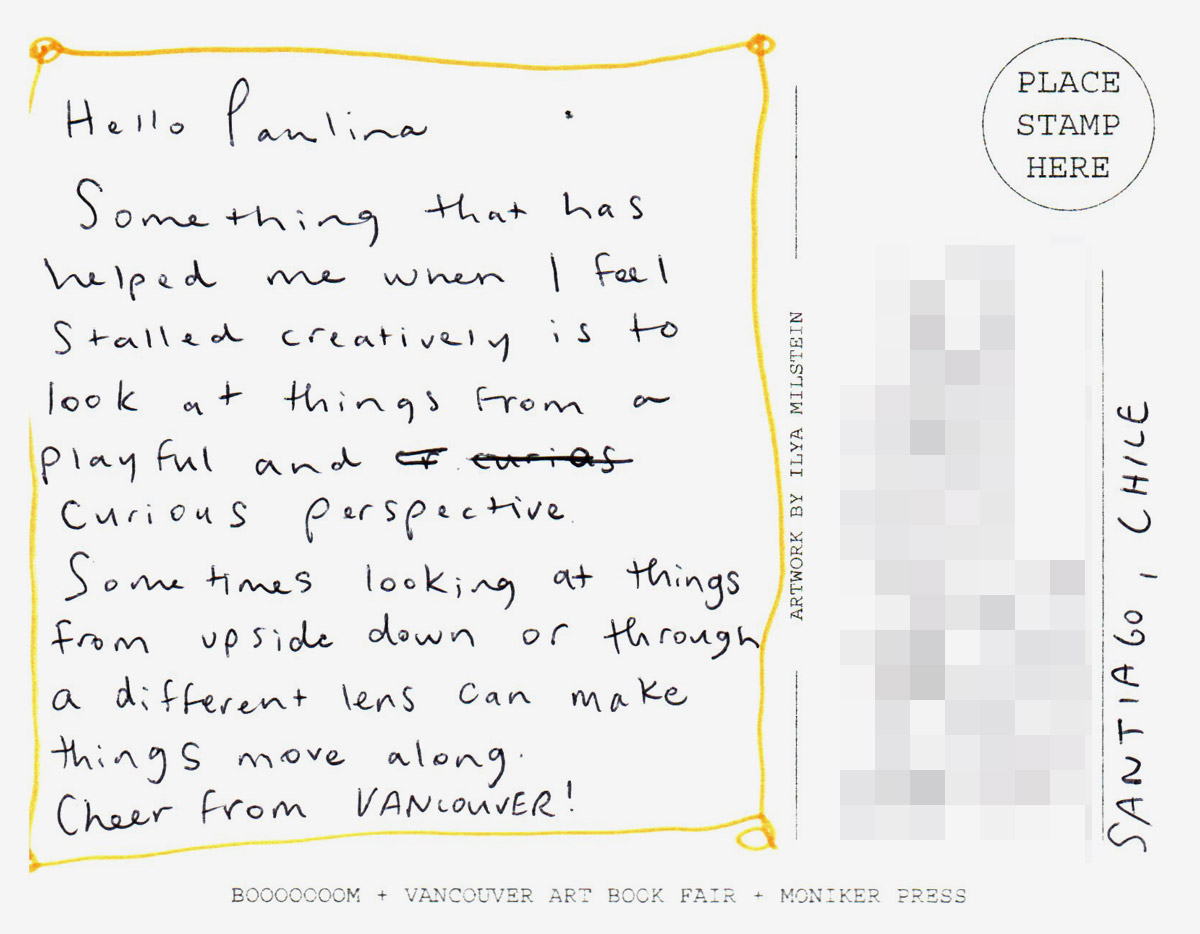 Hello Paulina
Something that has
helped me when I feel
stalled creatively is to
look at things from a
playful and
curious perspective.
Sometimes looking at things
from upside down or through
a different lens can make
things move along.
Cheer from VANCOUVER!
ARTWORK BY ILYA MILSTEIN
PLACE
STAMP
HERE
SANTIAGO, CHILE
BOOOOOOOM + VANCOUVER ART BOOK FAIR + MONIKER PRESS